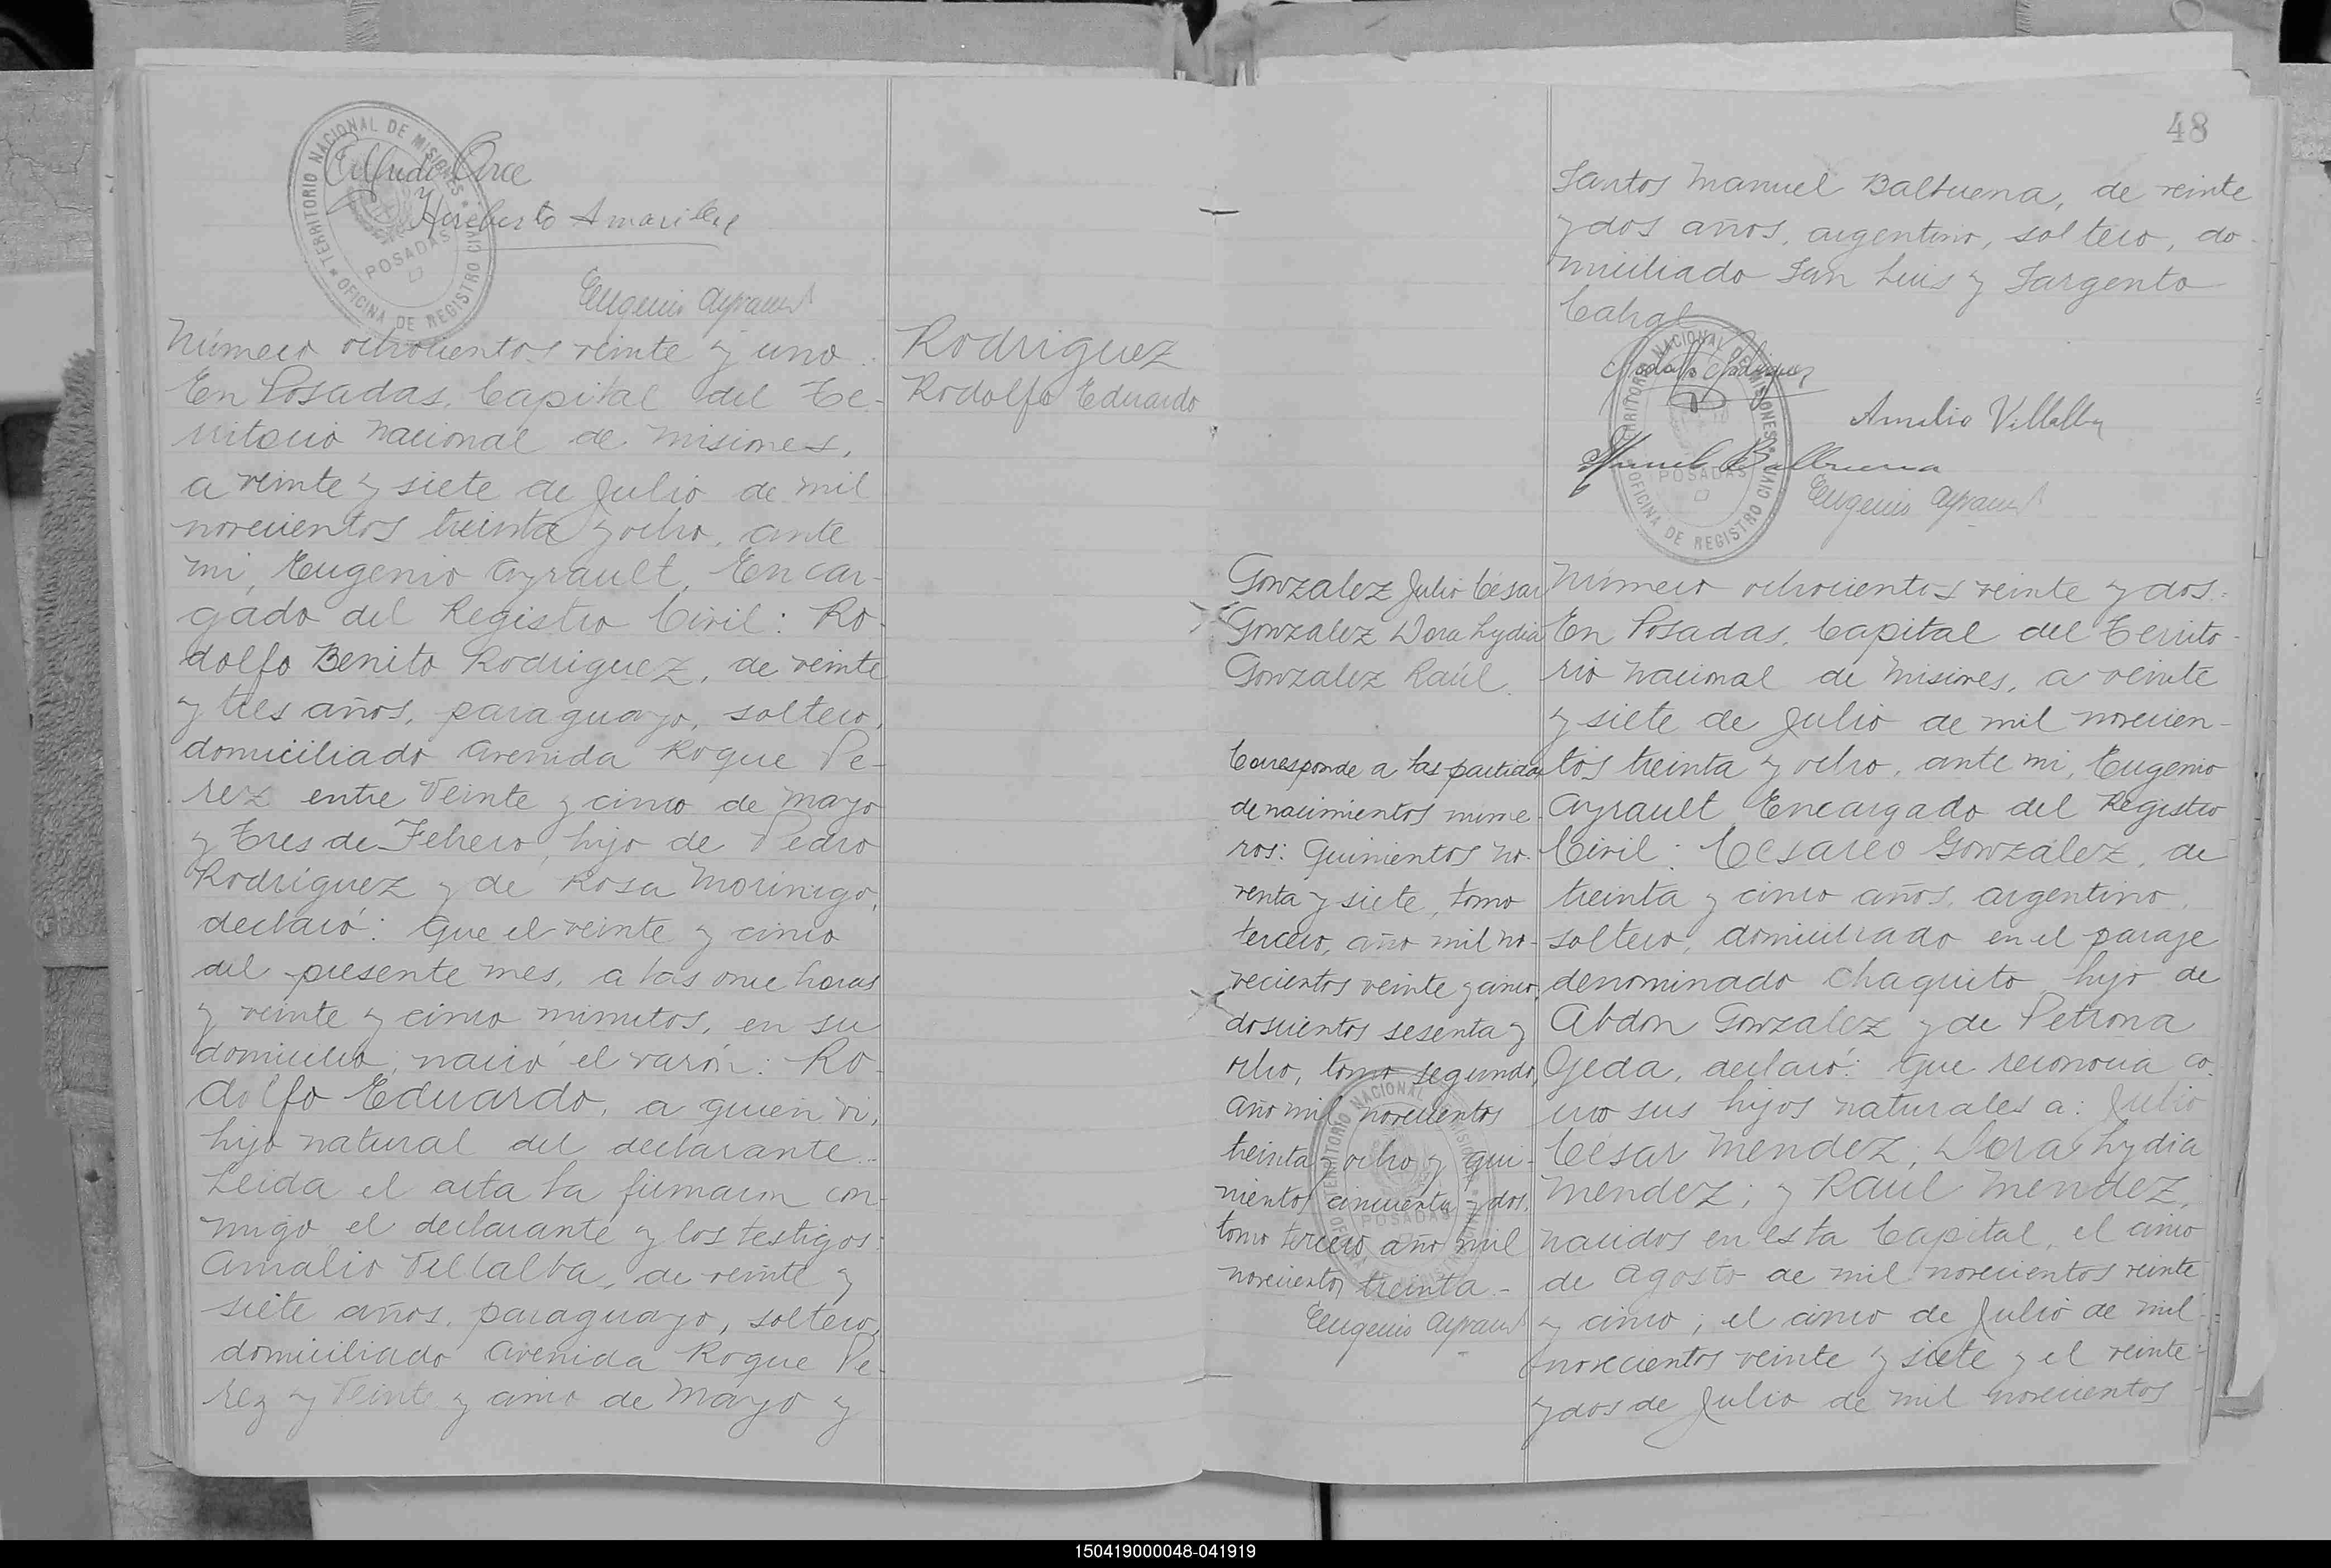 TERRITORIO NACIONAL DE MISIONES
OFICINA DE REGISTRO CIVIL
POSADAS
Alfredo Arce
Heriberto Amarilla
Eugenio Ayrault
Número ochocientos veinte y uno.
En Posadas, Capital del Te-
rritorio Nacional de Misiones,
a veinte y siete de Julio de mil
novecientos treinta y ocho, ante
mi, Eugenio Ayrault, Encar-
gado del Registro Civil: Ro-
dolfo Benito Rodriguez, de veinte
y tres años, paraguayo, soltero,
domiciliado Avenida Roque Pe-
rez entre Veinte y cinco de Mayo
y Tres de Febrero, hijo de Pedro
Rodríguez y de Rosa Morinigo,
declaró: Que el veinte y cinco
del presente mes, a las once horas
y veinte y cinco minutos, en su
domicilio, nació el varón: Ro-
dolfo Eduardo, a quien vi,
hijo natural del declarante.-
Leida el acta la firmaron con-
migo el declarante y los testigos:
Amalio Villalba, de veinte y
siete años, paraguayo, soltero,
domiciliado Avenida Roque Pe-
rez y Veinte y cinco de Mayo y
Rodriguez
Rodolfo Eduardo
48
Santos Manuel Balbuena, de veinte
y dos años, argentino, soltero, do-
miciliado San Luis y Sargento
Cabral
TERRITORIO NACIONAL DE MISIONES
OFICINA DE REGISTRO CIVIL
POSADAS
Rodolfo Rodriguez
Amalio Villalba
Manuel Balbuena
Eugenio Ayrault
Gonzalez Julio César
Gonzalez Dora Lydia
Gonzalez Raúl.
Corresponde a las partidas
de nacimientos núme-
ros: Quinientos no-
venta y siete, tomo
tercero, año mil no-
vecientos veinte y cinco,
doscientos sesenta y
ocho, tomo segundo,
año mil novecientos
treinta y ocho y qui-
nientos cincuenta y dos,
tomo tercero, año mil
novecientos treinta-
Eugenio Ayrault
TERRITORIO NACIONAL DE MISIONES
POSADAS
Número ochocientos veinte y dos.
En Posadas, Capital del Territo-
rio Nacional de Misiones, a veinte
y siete de Julio de mil novecien-
tos treinta y ocho, ante mi, Eugenio
Ayrault Encargado del Registro
Civil: Cesareo Gonzalez, de
treinta y cinco años, argentino,
soltero, domiciliado en el paraje
denominado Chaquito, hijo de
Abdon Gonzalez y de Petrona
Ojeda, declaró: Que reconocia co-
mo sus hijos naturales a: Julio
César Mendez, Dora Lydia
Mendez; y Raul Mendez,
nacidos en esta Capital, el cinco
de Agosto de mil novecientos veinte
y cinco; el cinco de Julio de mil
novecientos veinte y siete y el veinte
y dos de Julio de mil novecientos
150419000048-041919